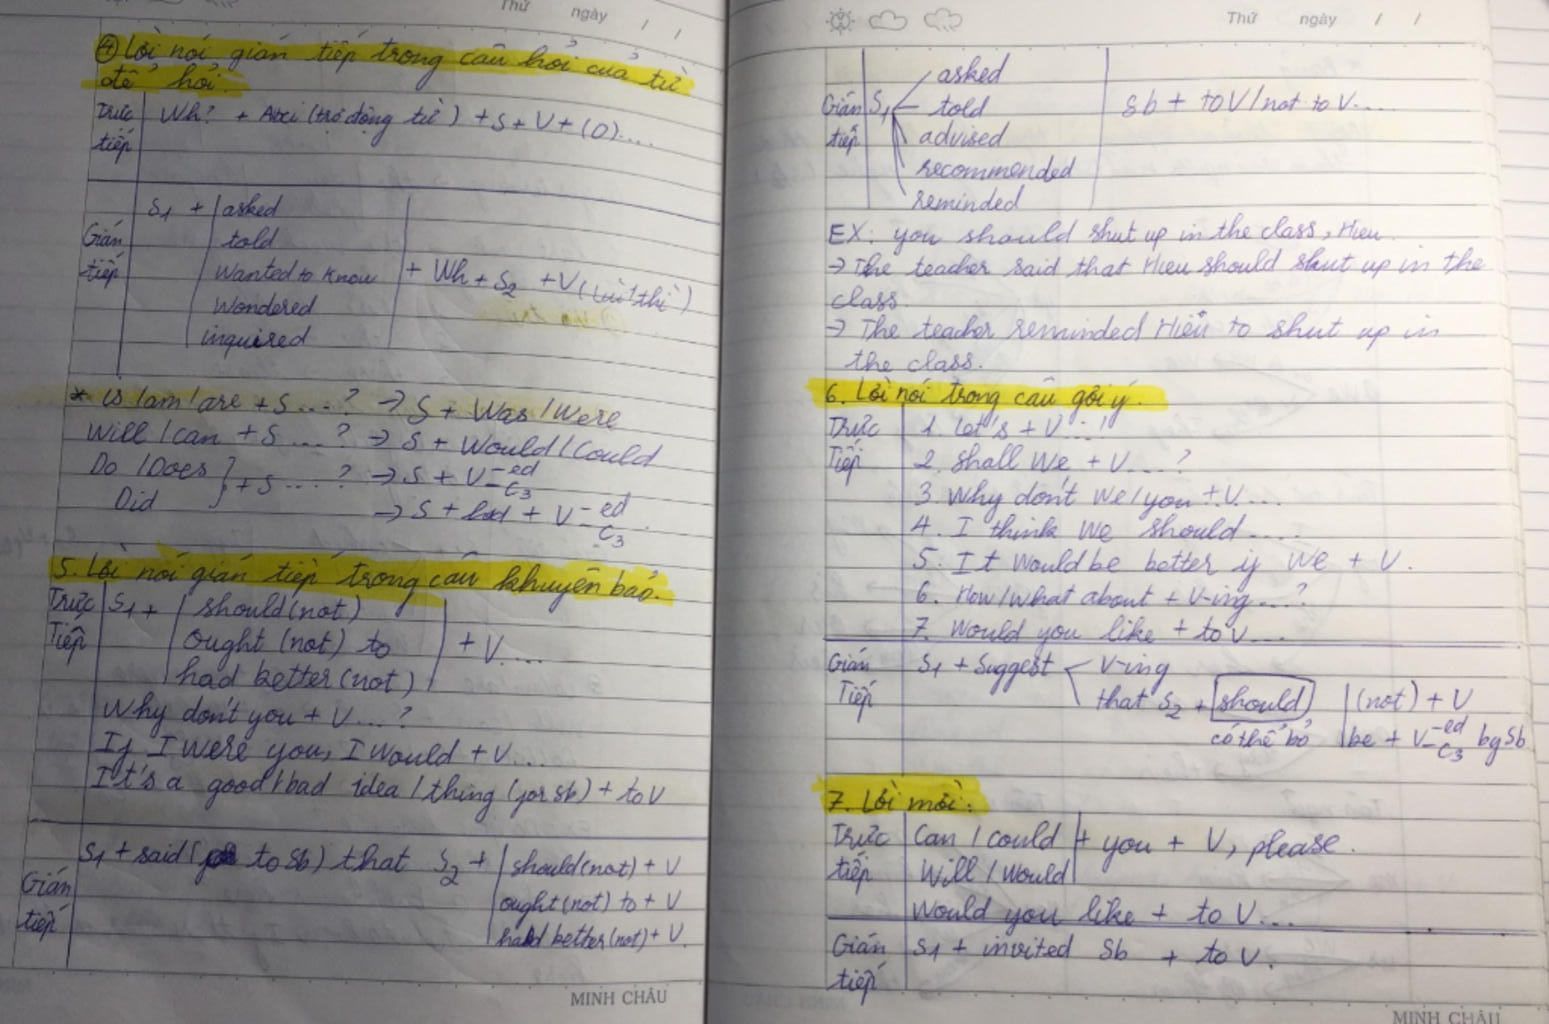 Thứ ngày / /
④ Lời nói gián tiếp trong câu hỏi của từ
để hỏi.
Trực tiếp Wh? + Auxi (trợ động từ) + S + V + (O)....
Gián tiếp S1 + asked
told
wanted to know + Wh + S2 + V (lùi thì)
wondered
inquired
* is /am/ are + S ....? → S + was / were
Will / can + S ....? → S + would / could
Do / Does } + S ....? → S + V-ed
C3
Did → S + had + V-ed
C3
5. Lời nói gián tiếp trong câu khuyên bảo.
Trực Tiếp S1 + should (not)
ought (not) to + V....
had better (not)
Why don't you + V....?
If I were you, I would + V....
It's a good / bad idea / thing (for sb) + to V
Gián tiếp S1 + said (to sb) that S2 + should (not) + V
ought (not) to + V
had better (not) + V.
MINH CHÂU
Thứ ngày / /
asked
Gián tiếp S1 told sb + to V / not to V....
advised
recommended
reminded
EX: you should shut up in the class, Hieu.
→ The teacher said that Hieu should shut up in the
class
→ The teacher reminded Hiếu to shut up in
the class.
6. Lời nói trong câu gợi ý.
Trực Tiếp 1. Let's + V....!
2. Shall we + V....?
3. Why don't we / you + V....
4. I think we should....
5. It would be better if we + V.
6. How / what about + V-ing....?
7. Would you like + to V....
Gián Tiếp S1 + suggest V-ing
that S2 + should (not) + V
có thể bỏ be + V-ed by sb
C3
7. Lời mời:
Trực tiếp Can / could + you + V, please.
Will / would
Would you like + to V....
Gián tiếp S1 + invited sb + to V.
MINH CHÂU